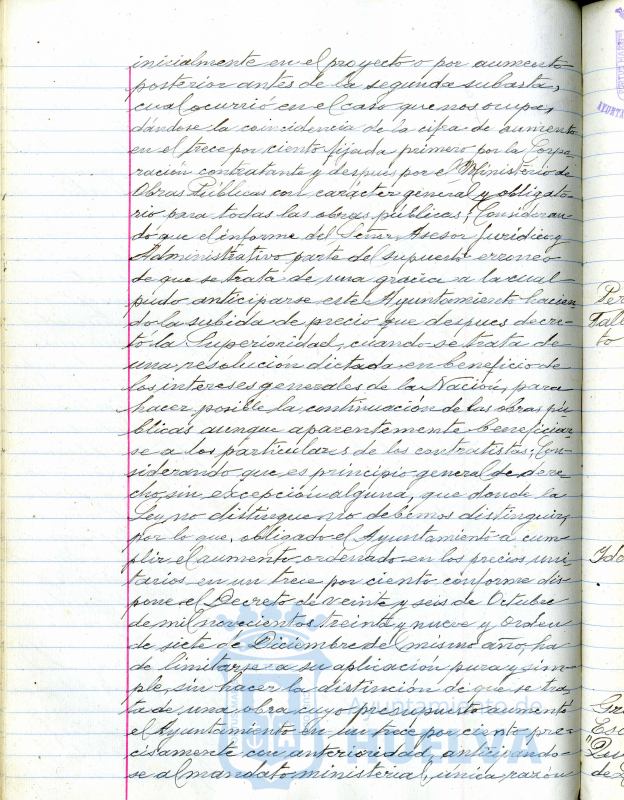 inicialmente en el proyecto o por aumento
posterior antes de la segunda subasta,
cual ocurrió en el caso que nos ocupa,
dándose la coincidencia de la cifra de aumento
en el trece por ciento fijada primero por la Corpo-
ración contratante y despues por el Ministerio de
Obras Públicas con carácter general y obligato-
rio para todas las obras públicas; Consideran-
do que el informe del Señor Asesor Jurídico y
Administrativo parte del supuesto erroneo
de que se trata de una gracia a la cual
pudo anticiparse este Ayuntamiento hacien-
do la subida de precio que despues decre-
tó la Superioridad, cuando se trata de
una resolución dictada en beneficio de
los intereses generales de la Nación, para
hacer posible la continuación de las obras pú-
blicas aunque aparentemente beneficiar-
se a los particulares de los contratistas; Con-
siderando que es principio general de dere-
cho, sin excepción alguna, que donde la
Ley no distingue no debemos distinguir,
por lo que, obligado el Ayuntamiento a cum-
plir el aumento ordenado en los precios uni-
tarios en un trece por ciento conforme dis-
pone el Decreto de veinte y seis de Octubre
de mil novecientos treinta y nueve y orden
de siete de Diciembre del mismo año, ha
de limitarse a su aplicación pura y sim-
ple, sin hacer la distinción de que se tra-
ta de una obra cuyo presupuesto aumentó
el Ayuntamiento en un trece por ciento pre-
cisamente con anterioridad, anticipando-
se al mandato ministerial, única razón
Ayuntamiento de
HUELVA
Per
Fall
to
Ido
Gra
Esc
de